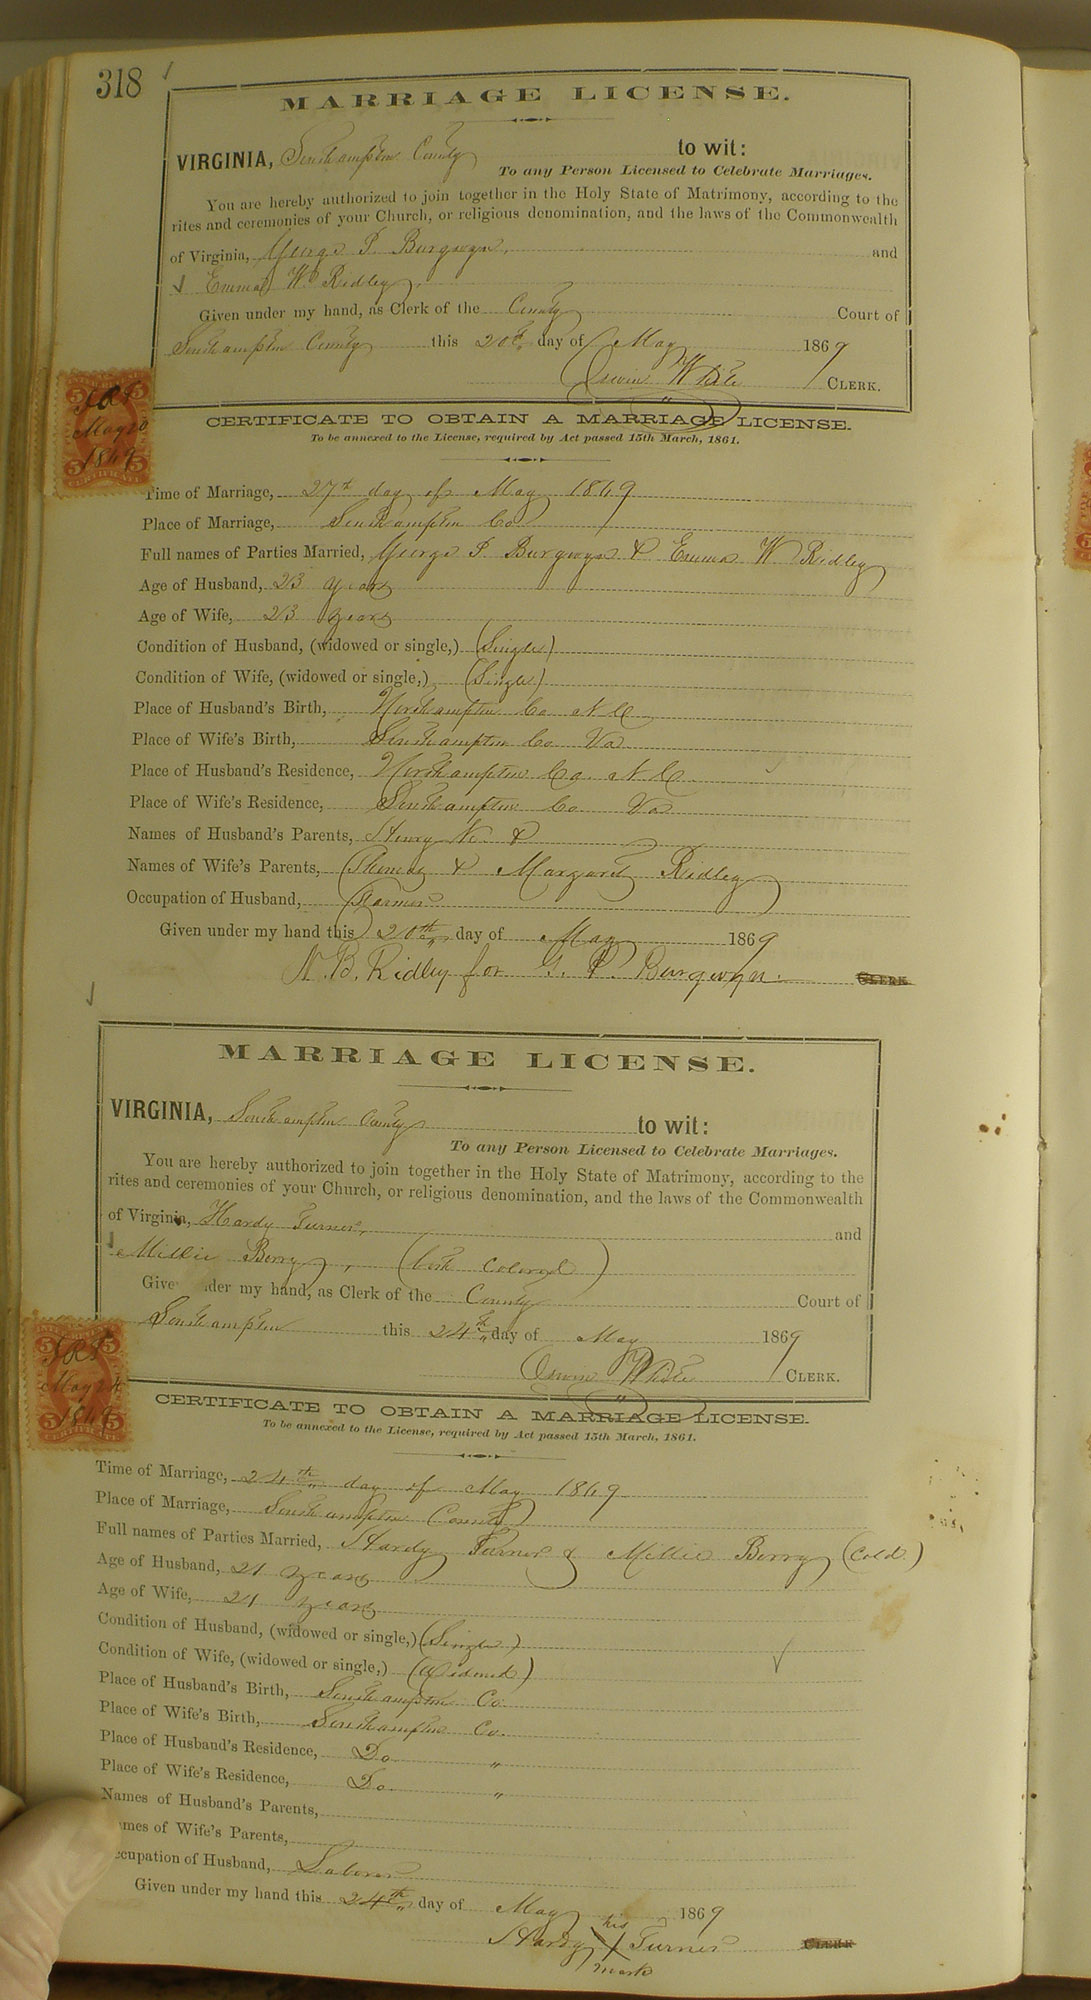 318
MARRIAGE LICENSE.
VIRGINIA, Southampton County to wit:
To any Person Licensed to Celebrate Marriages.
You are hereby authorized to join together in the Holy State of Matrimony, according to the
rites and ceremonies of your Church, or religious denomination, and the laws of the Commonwealth
of Virginia, George P. Burgwyn, and
Emma W. Ridley,
Given under my hand, as Clerk of the County Court of
Southampton County this 20th day of May 1869
White CLERK.
CERTIFICATE TO OBTAIN A MARRIAGE LICENSE.
To be annexed to the License, required by Act passed 15th March, 1861.
May 20
1869
CERTIFICATE
Time of Marriage, 27th day of May 1869
Place of Marriage, Southampton Co
Full names of Parties Married, George P. Burgwyn & Emma W Ridley
Age of Husband, 23 years
Age of Wife, 23 years
Condition of Husband, (widowed or single,) (Single)
Condition of Wife, (widowed or single,) (Single)
Place of Husband's Birth, Northampton Co N C
Place of Wife's Birth, Southampton Co Va
Place of Husband's Residence, Northampton Co. N C.
Place of Wife's Residence, Southampton Co Va
Names of Husband's Parents, Henry K. &
Names of Wife's Parents, Thomas & Margaret Ridley
Occupation of Husband, Farmer
Given under my hand this 20th day of May 1869
N. B. Ridley for G. P. Burgwyn. CLERK
MARRIAGE LICENSE.
VIRGINIA, Southampton County to wit:
To any Person Licensed to Celebrate Marriages.
You are hereby authorized to join together in the Holy State of Matrimony, according to the
rites and ceremonies of your Church, or religious denomination, and the laws of the Commonwealth
of Virginia, Hardy Turner, and
Millie Berry, (both colored)
Give der my hand, as Clerk of the County Court of
Southampton this 24th day of May 1869
White CLERK.
CERTIFICATE TO OBTAIN A MARRIAGE LICENSE.
To be annexed to the License, required by Act passed 15th March, 1861.
May 24
1869
CERTIFICATE
Time of Marriage, 24th day of May 1869
Place of Marriage, Southampton County
Full names of Parties Married, Hardy Turner & Millie Berry (Cold.)
Age of Husband, 21 years
Age of Wife, 21 years
Condition of Husband, (widowed or single,) (Single)
Condition of Wife, (widowed or single,) (Widowed)
Place of Husband's Birth, Southampton Co.
Place of Wife's Birth, Southampton Co.
Place of Husband's Residence, Do. "
Place of Wife's Residence, Do. "
Names of Husband's Parents,
ames of Wife's Parents,
ccupation of Husband, Laborer
Given under my hand this 24th day of May 1869
his
Hardy X Turner CLERK
mark